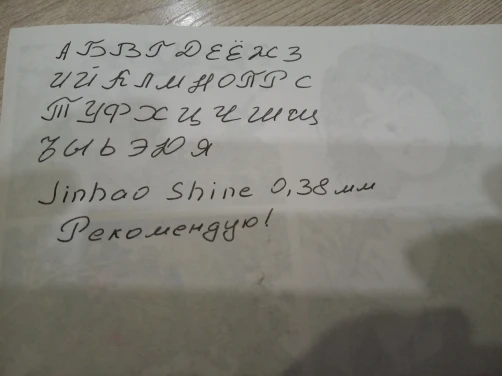 А Б В Г Д Е Ё Ж З
И Й К Л М Н О П Р С
Т У Ф Х Ц Ч Ш Щ
Ъ Ы Ь Э Ю Я
Jinhao Shine 0,38 мм
Рекомендую!